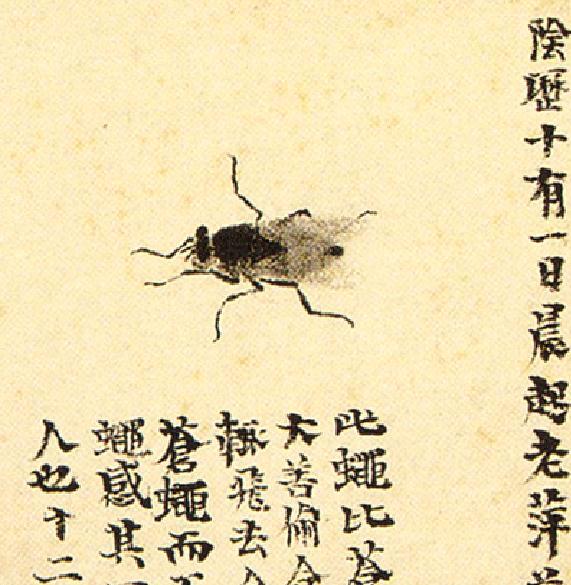 陰歷十有一日晨起老萍
此蠅比蒼
大善偷食
輒飛去
蒼蠅而
蠅感其
人也十二